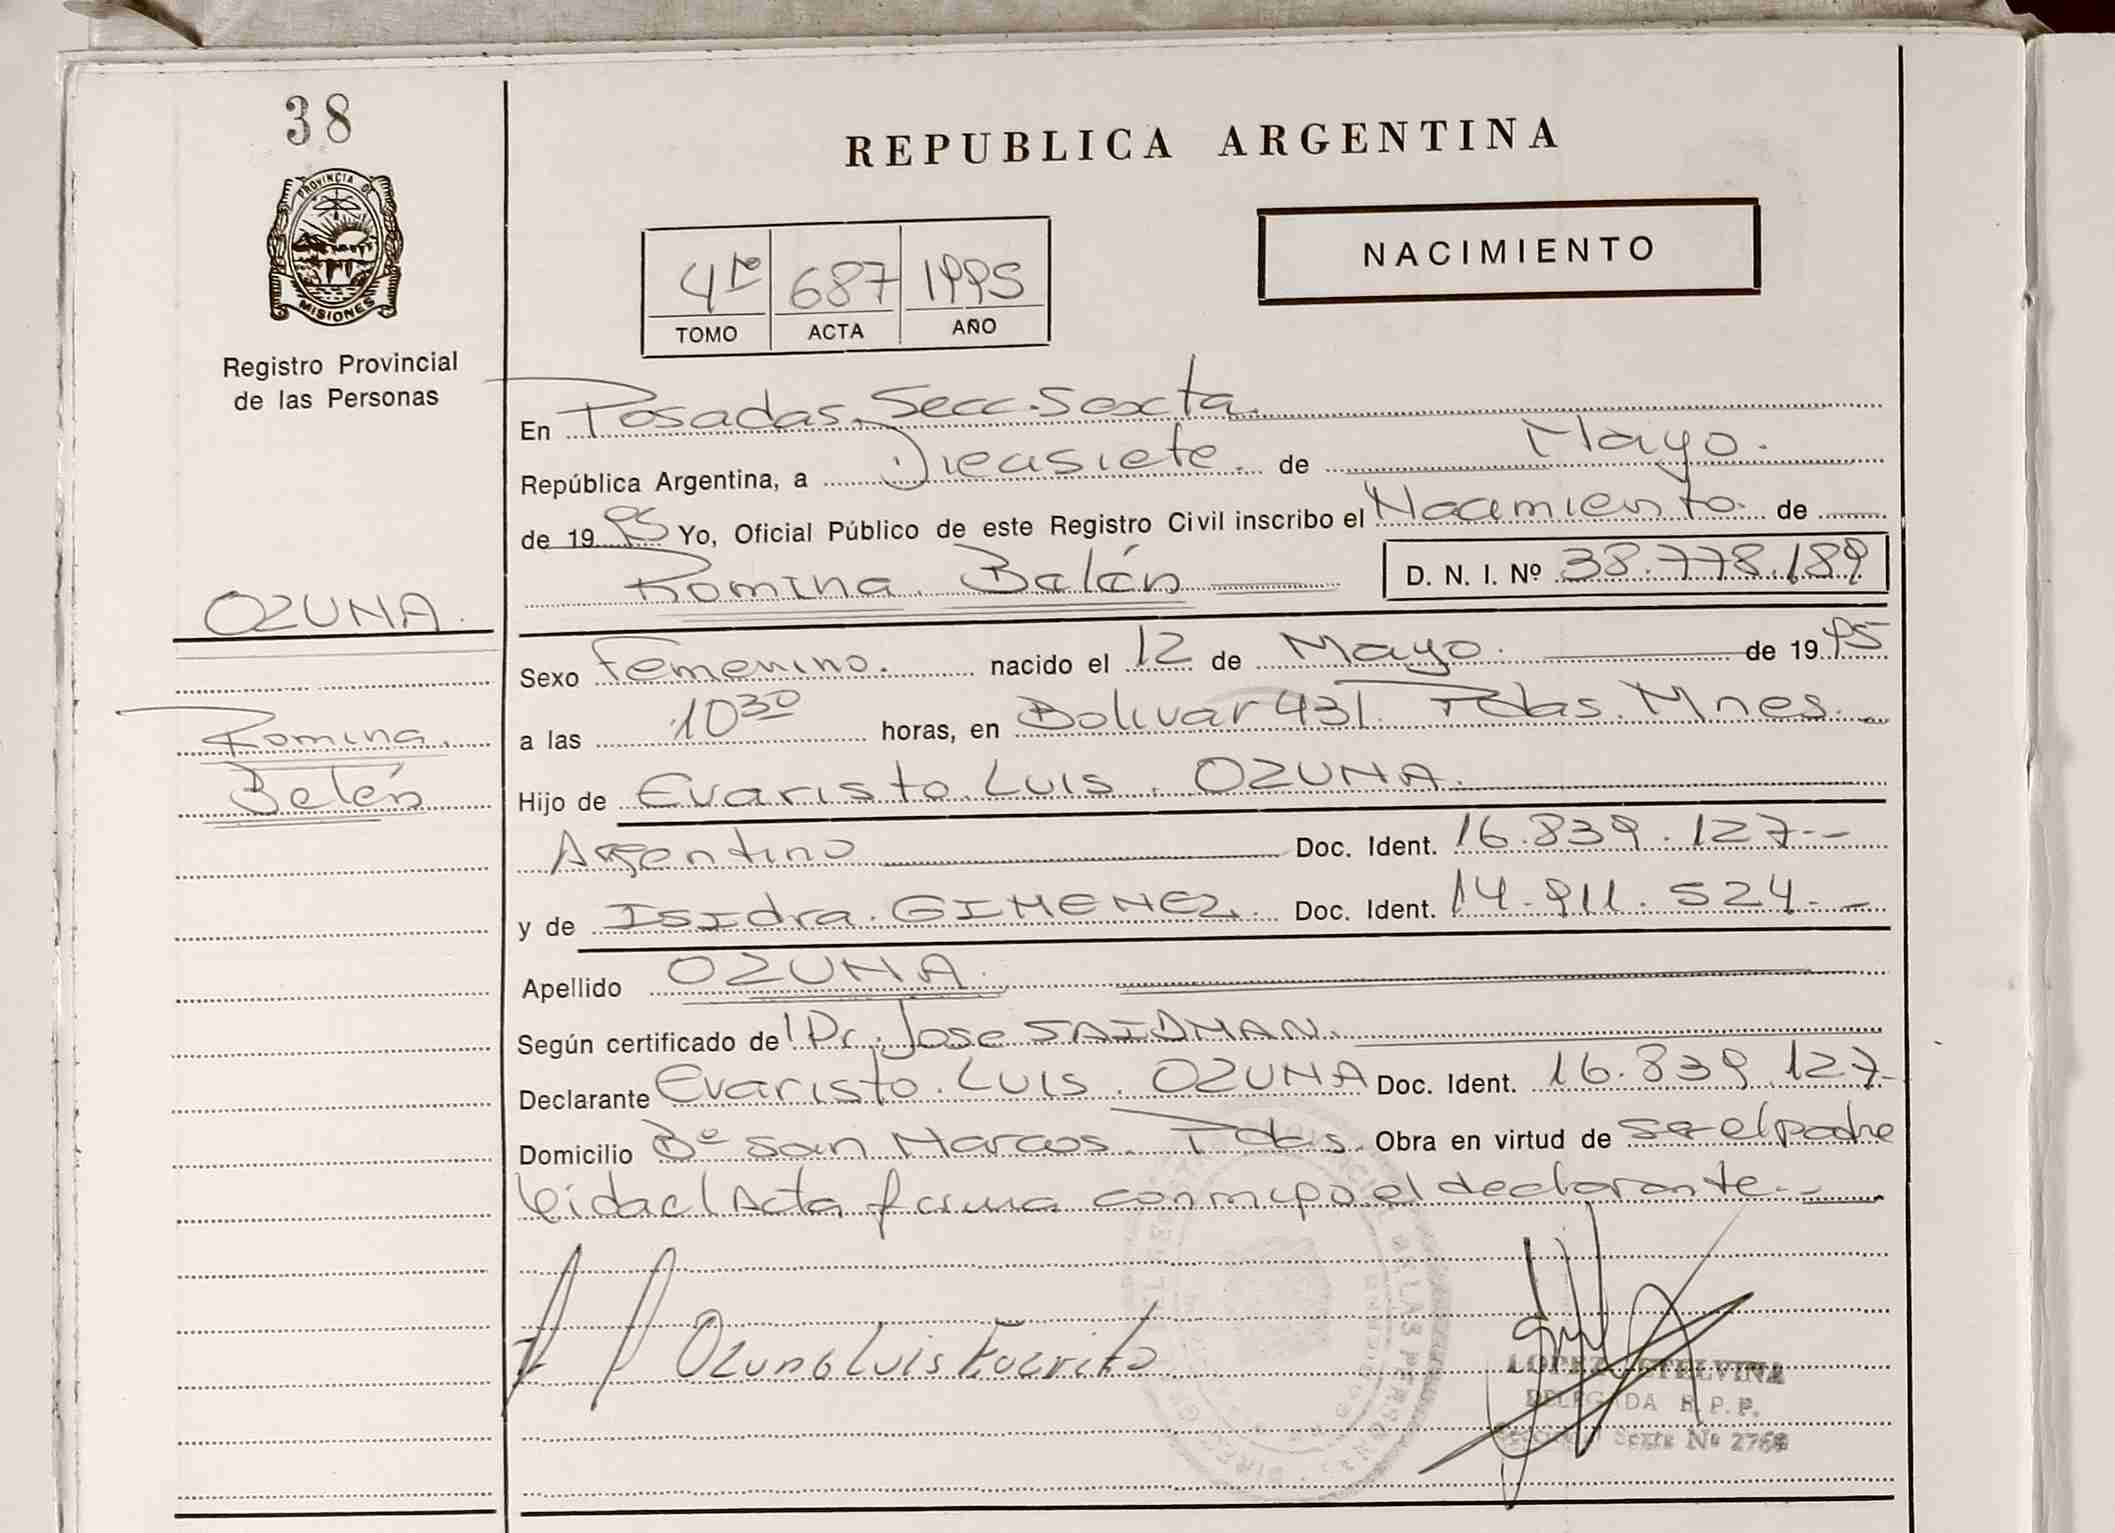 38
PROVINCIA DE
MISIONES
Registro Provincial
de las Personas
OZUNA.
Romina
Belén
REPUBLICA ARGENTINA
NACIMIENTO
4to 687 1995
TOMO ACTA AÑO
En Posadas. Secc. Sexta.
República Argentina, a Diecisiete. de Mayo.
de 1995 Yo, Oficial Público de este Registro Civil inscribo el Nacimiento. de
Romina Belén D. N. I. Nº 38.778.189
Sexo Femenino. nacido el 12 de Mayo. de 1995
a las 10 30 horas, en Bolivar 431. Pdas. Mnes.
Hijo de Evaristo Luis. OZUNA.
Argentino Doc. Ident. 16.839.127.--
y de Isidra. GIMENEZ. Doc. Ident. 14.911.524.--
Apellido OZUNA.
Según certificado de Dr. Jose SAIDMAN.
Declarante Evaristo. Luis. OZUNA Doc. Ident. 16.839.127-
Domicilio Bº San Marcos. Pdas. Obra en virtud de ser el padre
leida el Acta firma conmigo el declarante.--
Ozuna Luis Evaristo
LOPEZ ETELVINA
DELEGADA R. P. P.
Seccional Sexta Nº